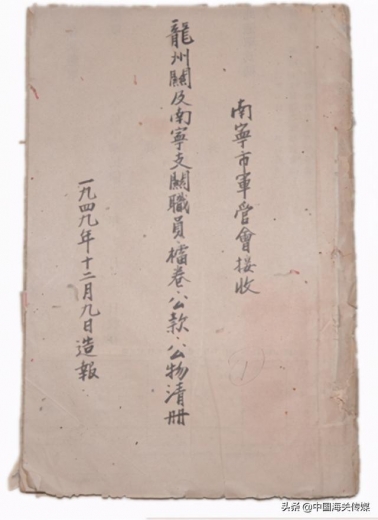 南寧市軍管會接收
龍州關及南寧支關職員檔卷公款公物清册
一九四九年十二月九日造報
头条 @中國海关传媒